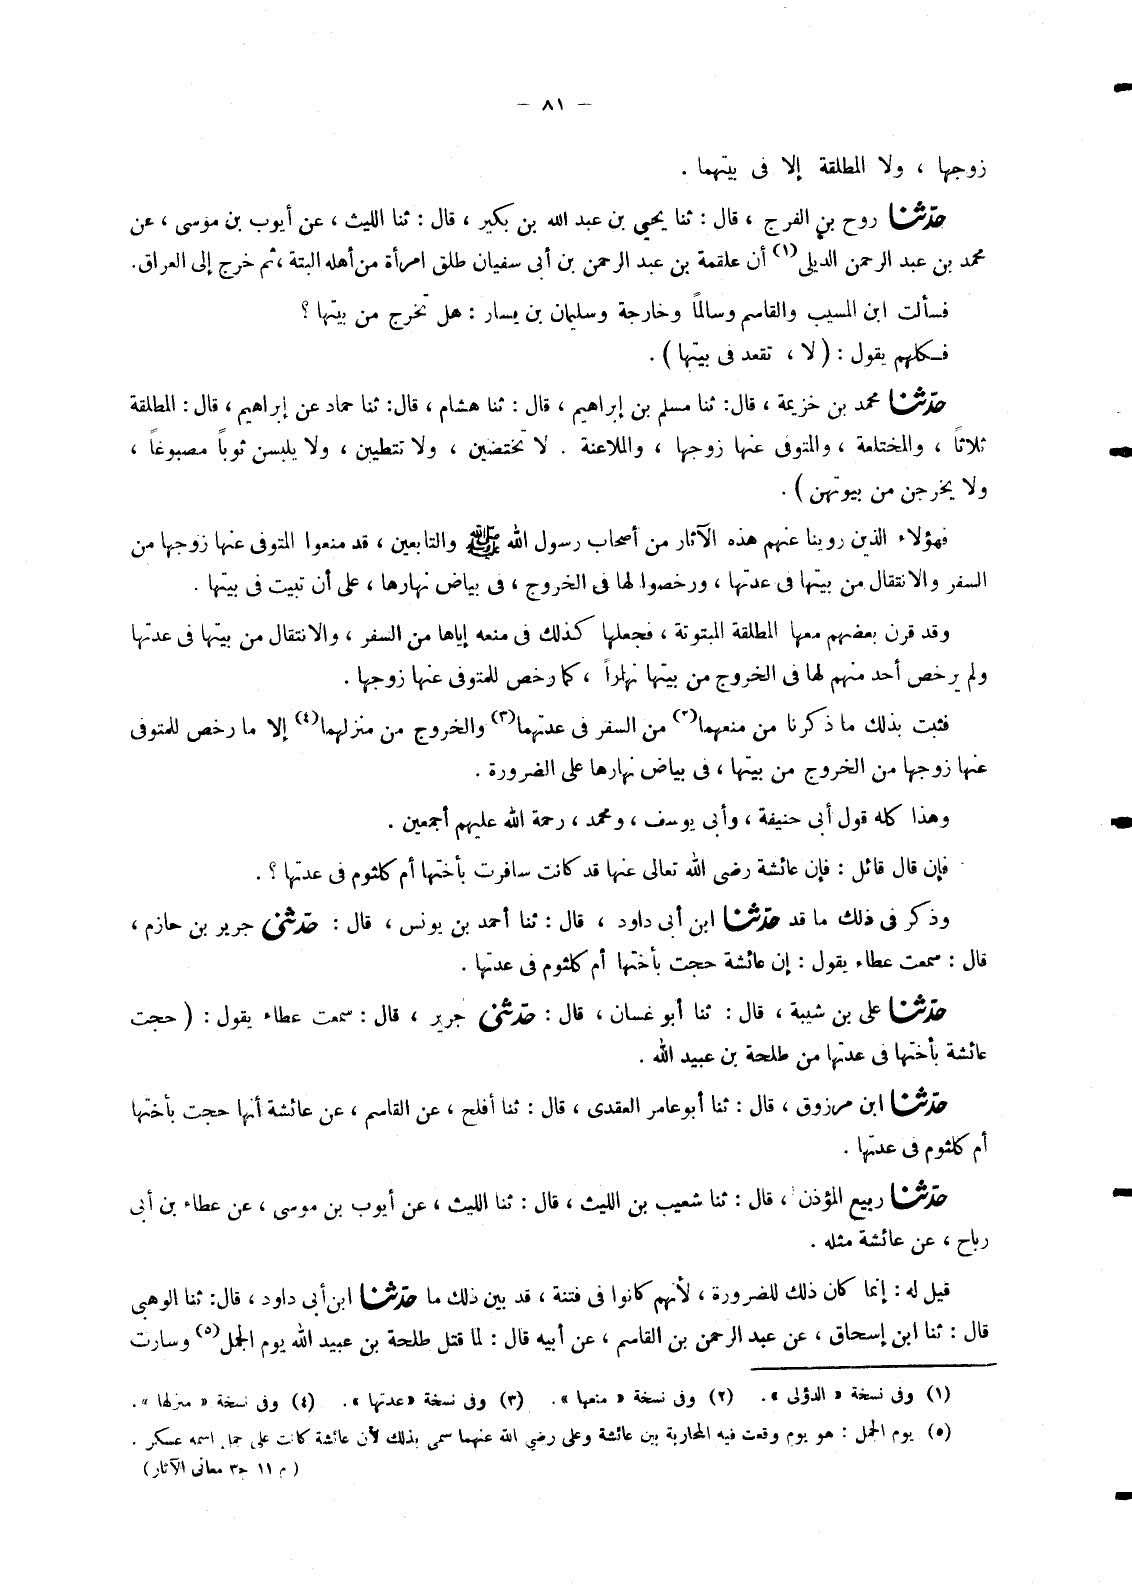 — ٨١ —
زوجها ، ولا المطلقة إلا فى بيتهما .
حدّثنا روح بن الفرج ، قال : ثنا يحيي بن عبد الله بن بكير ، قال : ثنا الليث ، عن أيوب بن موسى ، عن
محمد بن عبد الرحمن الديلى(١) أن علقمة بن عبد الرحمن بن أبى سفيان طلق امرأة من أهله البتة ، ثم خرج إلى العراق.
فسألت ابن المسيب والقاسم وسالماً وخارجة وسليمان بن يسار : هل تخرج من بيتها ؟
فكلهم يقول : ( لا ، تقعد فى بيتها ) .
حدّثنا محمد بن خزيمة ، قال: ثنا مسلم بن إبراهيم ، قال : ثنا هشام ، قال: ثنا حماد عن إبراهيم ، قال : المطلقة
ثلاثاً ، والمختلعة ، والمتوفى عنها زوجها ، والملاعنة . لا تختضبن ، ولا تتطيبن ، ولا يلبسن ثوباً مصبوغاً ،
ولا يخرجن من بيوتهن ) .
فهؤلاء الذين روينا عنهم هذه الآثار من أصحاب رسول الله ﷺ والتابعين ، قد منعوا المتوفى عنها زوجها من
السفر والانتقال من بيتها فى عدتها ، ورخصوا لها فى الخروج ، فى بياض نهارها ، على أن تبيت فى بيتها .
وقد قرن بعضهم معها المطلقة المبتوتة ، فجعلها كذلك فى منعه إياها من السفر ، والانتقال من بيتها فى عدتها
ولم يرخص أحد منهم لها فى الخروج من بيتها نهاراً ، كما رخص للمتوفى عنها زوجها .
فثبت بذلك ما ذكرنا من منعهما(٢) من السفر فى عدتهما(٣) والخروج من منزلهما(٤) إلا ما رخص للمتوفى
عنها زوجها من الخروج من بيتها ، فى بياض نهارها على الضرورة .
وهذا كله قول أبى حنيفة ، وأبى يوسف ، ومحمد ، رحمة الله عليهم أجمعين .
فإن قال قائل : فإن عائشة رضى الله تعالى عنها قد كانت سافرت بأختها أم كلثوم فى عدتها ؟ .
وذكر فى ذلك ما قد حدّثنا ابن أبى داود ، قال : ثنا أحمد بن يونس ، قال : حدّثنى جرير بن حازم ،
قال : سمعت عطاء يقول : إن عائشة حجت بأختها أم كلثوم فى عدتها .
حدّثنا على بن شيبة ، قال : ثنا أبو غسان ، قال : حدّثنى جرير ، قال : سمعت عطاء يقول : ( حجت
عائشة بأختها فى عدتها من طلحة بن عبيد الله .
حدّثنا ابن مرزوق ، قال : ثنا أبو عامر العقدى ، قال : ثنا أفلح ، عن القاسم ، عن عائشة أنها حجت بأختها
أم كلثوم فى عدتها .
حدّثنا ربيع المؤذن ، قال : ثنا شعيب بن الليث ، قال : ثنا الليث ، عن أيوب بن موسى ، عن عطاء بن أبى
رباح ، عن عائشة مثله .
قيل له : إنما كان ذلك للضرورة ، لأنهم كانوا فى فتنة ، قد بين ذلك ما حدّثنا ابن أبى داود ، قال: ثنا الوهبى
قال : ثنا ابن إسحاق ، عن عبد الرحمن بن القاسم ، عن أبيه قال : لما قتل طلحة بن عبيد الله يوم الجمل(٥) وسارت
(١) وفى نسخة « الدؤلى ». (٢) وفى نسخة « منعها ». (٣) وفى نسخة « عدتها ». (٤) وفى نسخة « منزلها ».
(٥) يوم الجمل : هو يوم وقعت فيه المحاربة بين عائشة وعلى رضي الله عنهما سمى بذلك لأن عائشة كانت على جمل اسمه عسكر .
( م ١١ جـ٣ معانى الآثار )